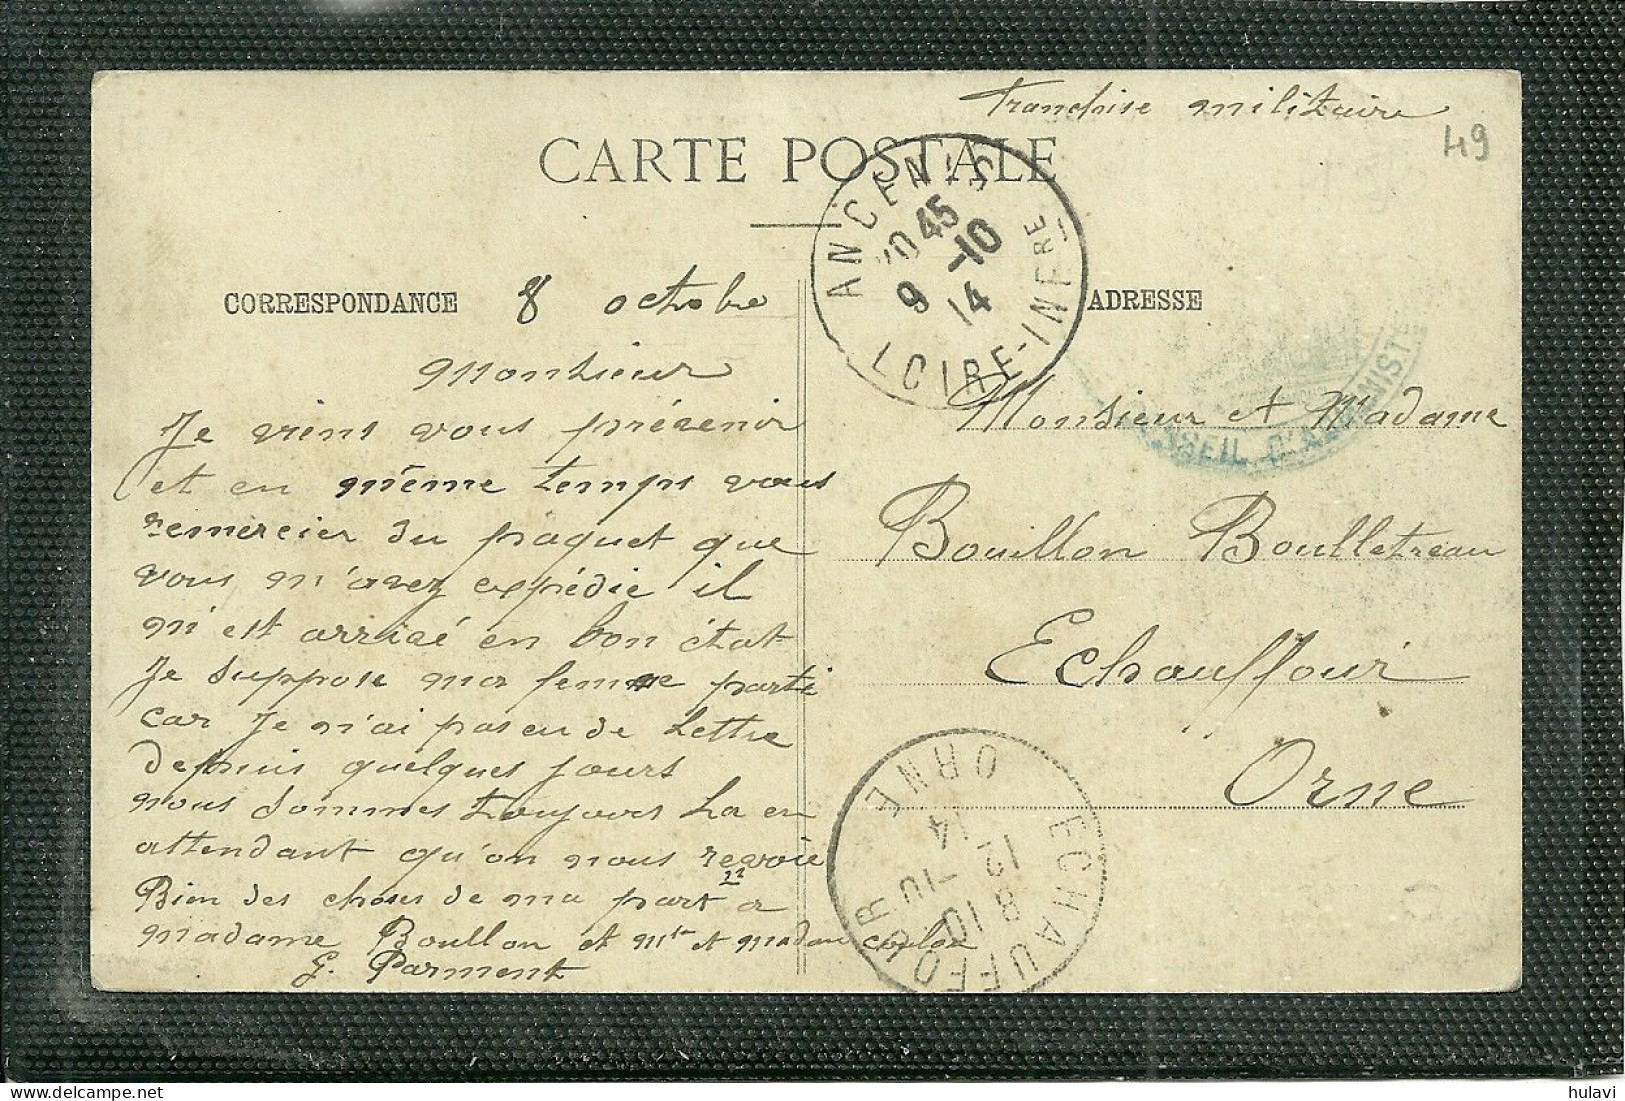 Franchise militaire
49
CARTE POSTALE
ANCENIS
10 45
9 -10
14
LOIRE-INFRE
CORRESPONDANCE
8 octobre
ADRESSE
CONSEIL D'ADMINIST
Monsieur
Je viens vous prévenir
et en même temps vous
remercier du paquet que
vous m'avez expédie il
m'est arrivé en bon état
Je suppose ma femme parti
car je n'ai pas eu de lettre
depuis quelques jours
nous sommes toujours la en
attendant qu'on nous revoie
Bien des choses de ma part a
madame Boullon et Mr et madam
G. Parment
Monsieur et Madame
Bouillon Boulletreau
Echauffour
Orne
ECHAUFFOUR ORNE
8 10
12 -10
14
hulavi